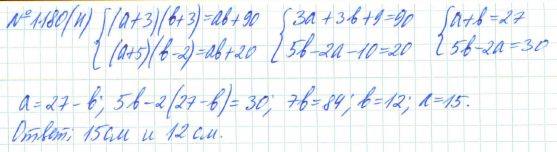 № 1180(н) { (a+3)(b+3)=ab+90 { 3a+3b+9=90 { a+b=27
(a+5)(b-2)=ab+20 5b-2a-10=20 5b-2a=30
a=27-b; 5b-2(27-b)=30; 7b=84; b=12; a=15.
Ответ: 15см и 12 см.